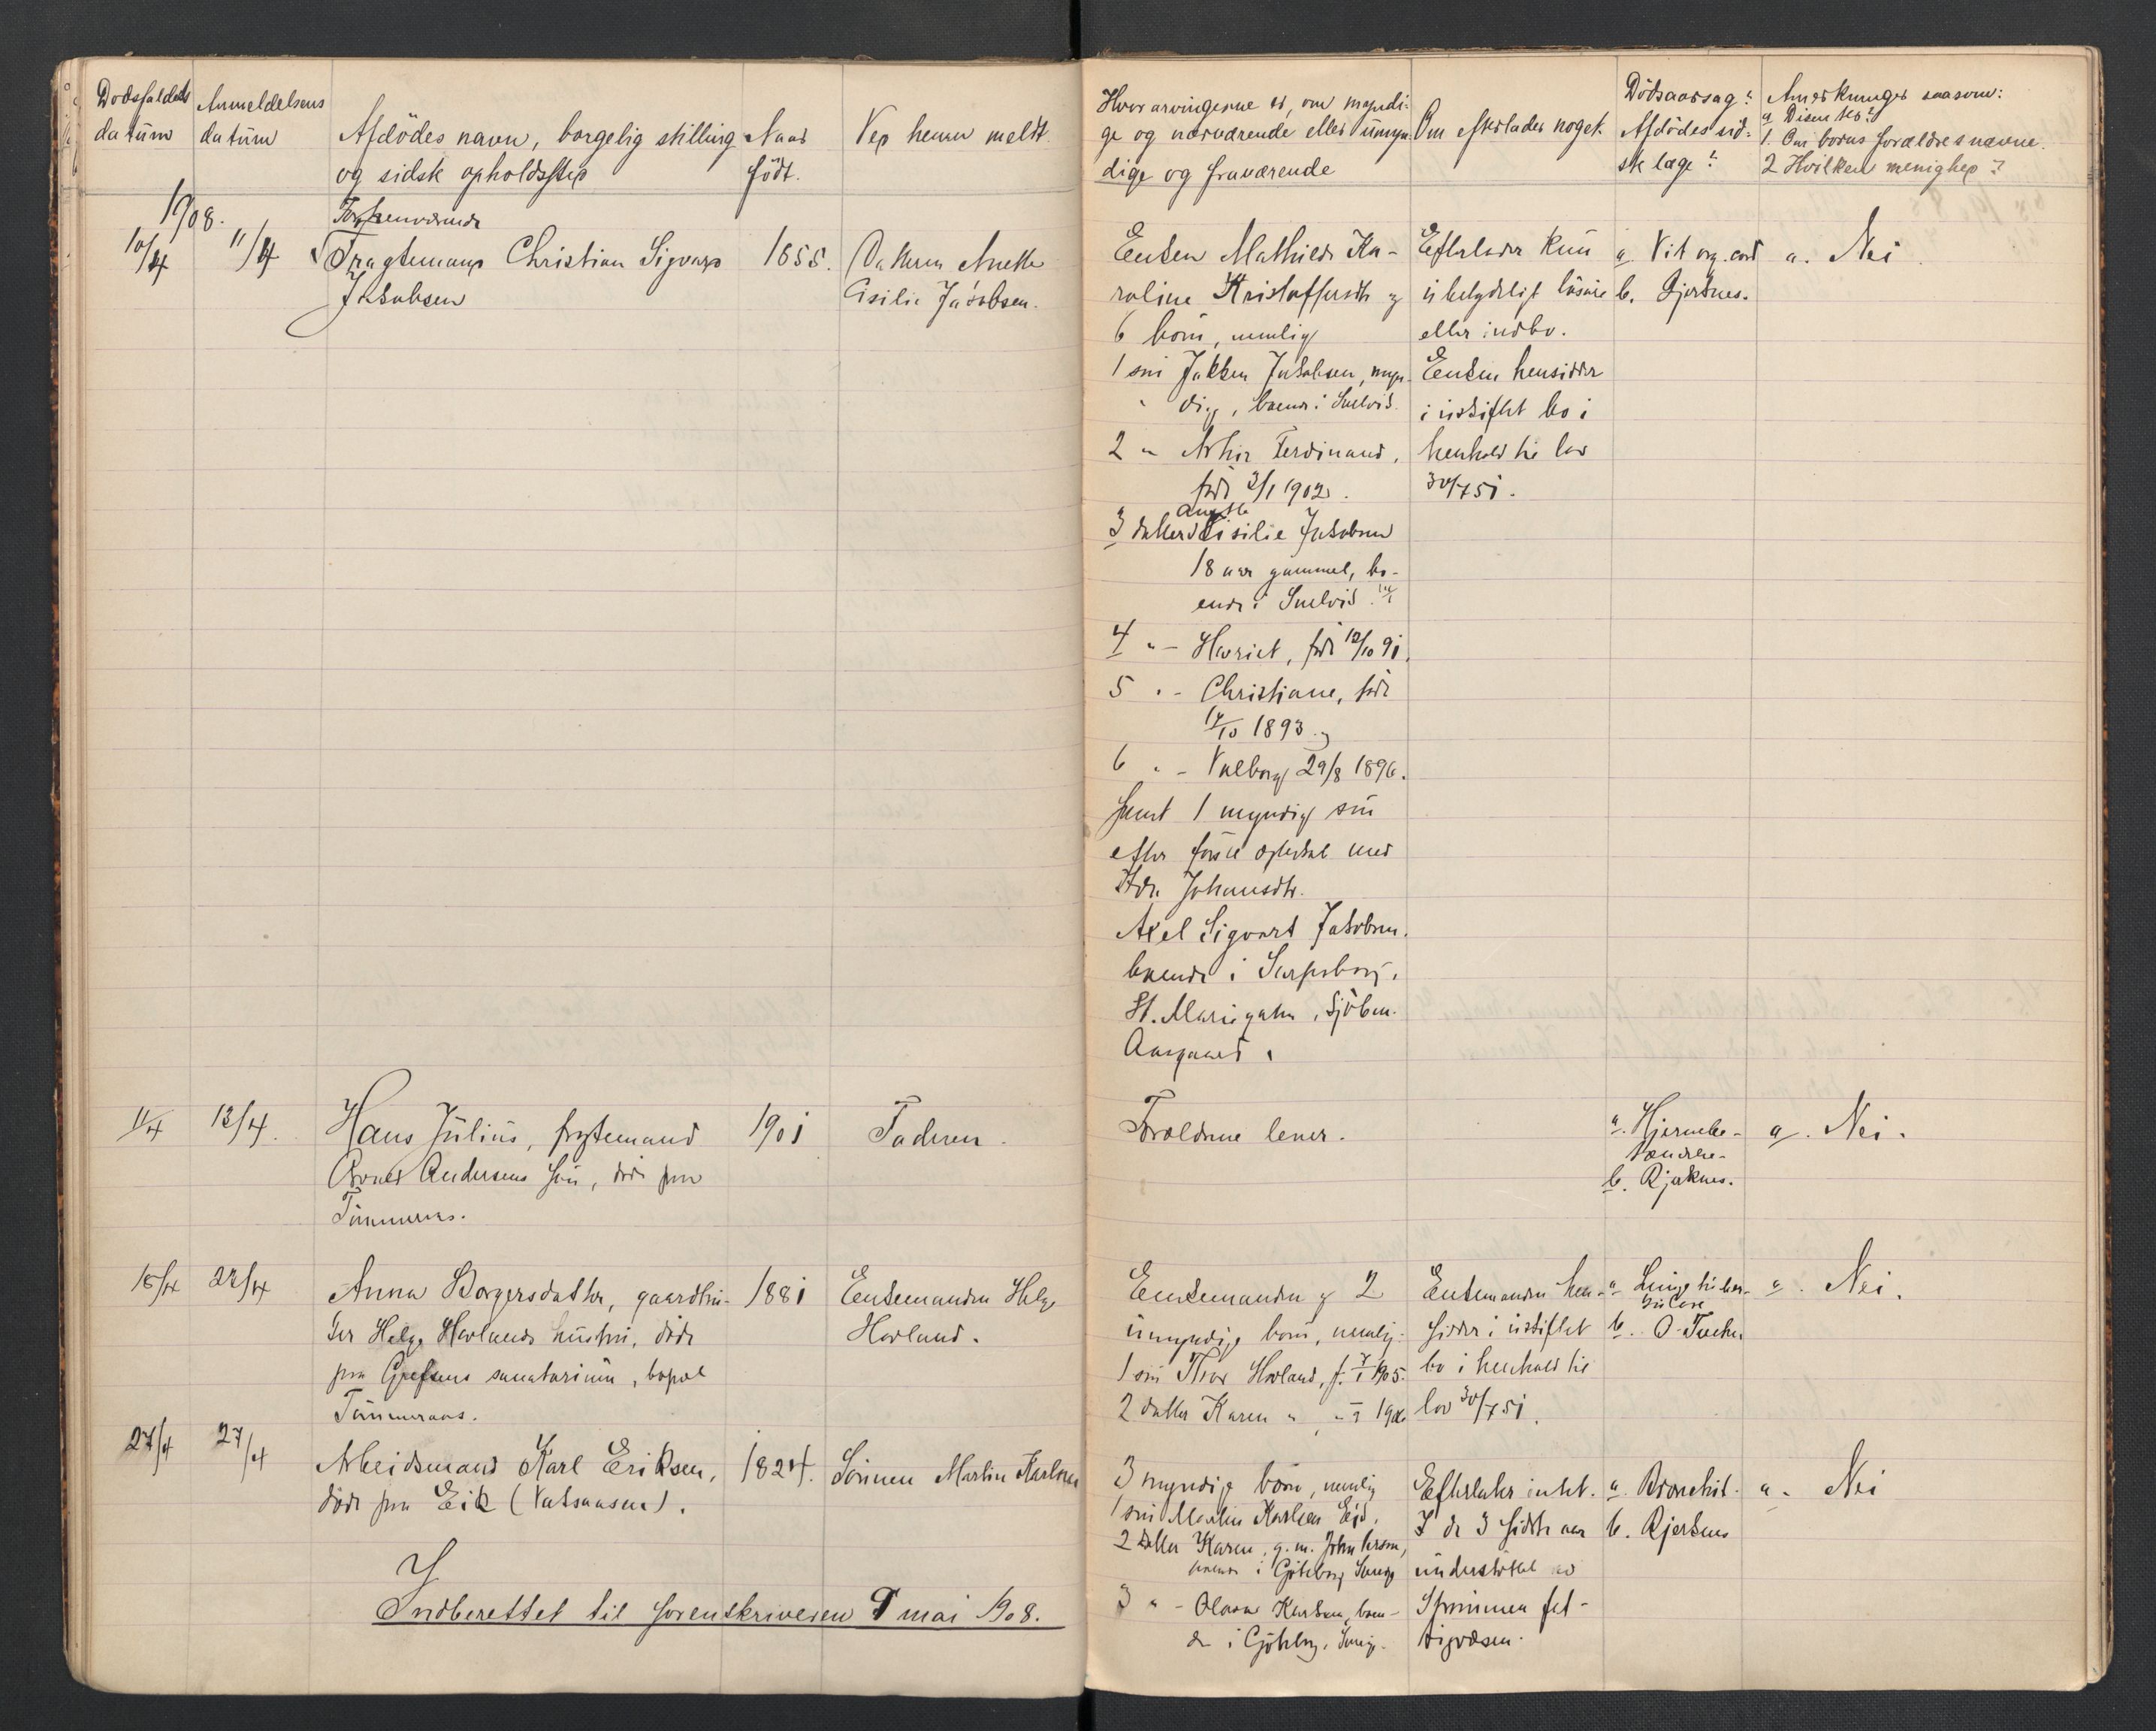 Dødsfaldets datum
Anmeldelsens datum
Afdödes navn, borgelig stilling og sidste opholdssted
Naar födt.
Ved hvem meldt
Hvor arvingerne er, om myndi-
ge og nærværende eller umyn-
dige og fraværende
Om efterlades noget.
Dödsaarsag?
Afdödes sid-
ste læge?
Anerkninger saasom:
a Disenter?
1. Om barns forældres navne.
2 Hvilken menighed?
1908.
10/4
11/4
Christian Sigvard
Jakobsen
1855.
Datteren Anette
Cisilie Jakobsen.
Enken Mathilde Ka-
roline Kristoffersdtr og
6 börn, nemlig
1 sön Jakobsen, myn-
dig, boende i Svelvik.
2 " Arthur Ferdinand,
född 3/1 1902.
Anette
3 datter Cisilie Jakobsen
18 aar gammel, bo-
ende i Svelvik
4 " - Harriet, född 12/10 91.
5 " - Christiane, född
17/10 1893 og
6 " - Valborg 29/8 1896.
samt 1 myndig sön
efter förste ægteskab med
Johansdtr.
Axel Sigvart Jakobsen.
boende i Sarpsborg,
St. Mariegaten
Efterlader kun
ubetydeligt lösöre
eller indbo.
Enken hensidder
i uskiftet bo i
henhold til lov
30/7 51.
a. Vit. org. cord
b. Bjerknes.
a. Nei.
11/4
13/4.
Hans Julius, fyrtemand
Andersens sön, död paa
Tömmeraas.
1901
Faderen.
Forældrene lever.
a. Hjernebe-
tændelse-
b. Bjerknes.
a. Nei.
15/4
24/4
Anna Borgersdatter, gaardbru-
ker Helge Hovlands hustru, döde
paa Grefsens sanatorium, bopæl
Tömmeraas.
1881
Enkemanden Helge
Hovland.
Enkemanden og 2
umyndige börn, nemlig:
1 sön Thor Hovland, f. 1905.
2 datter Karen " "
Enkemanden hen-
sidder i uskiftet
bo i henhold til
lov 30/7 51.
a. Lungetuber-
kulose
b. O.
a. Nei.
27/4
27/4
Arbeidsmand Karl Eriksen,
döde paa Eik
1824.
Sönnen Martin Karlsen
3 myndige börn, nemlig
1 sön Martin Karlsen Eik.
2 datter Karen, g. m.
boende i Göteborg Sverige
3 " - Karlsen, boen-
de i Göteborg, Sverige.
Efterlader intet.
I de 3 sidste aar
understöttet av
Strömmen fat-
tigvæsen.
a. Bronchit.
b. Bjerknes
a. Nei
Indberettet til sorenskriveren 9 mai 1908.